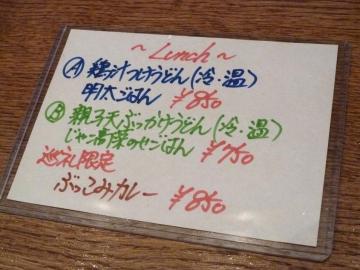 ~Lunch~
Ⓐ 鶏汁つけうどん(冷・温)
明太ごはん ¥850
Ⓑ 親子天ぶっかけうどん(冷・温)
じゃこ高菜のせごはん ¥750
巡礼限定
ぶっこみカレー ¥850